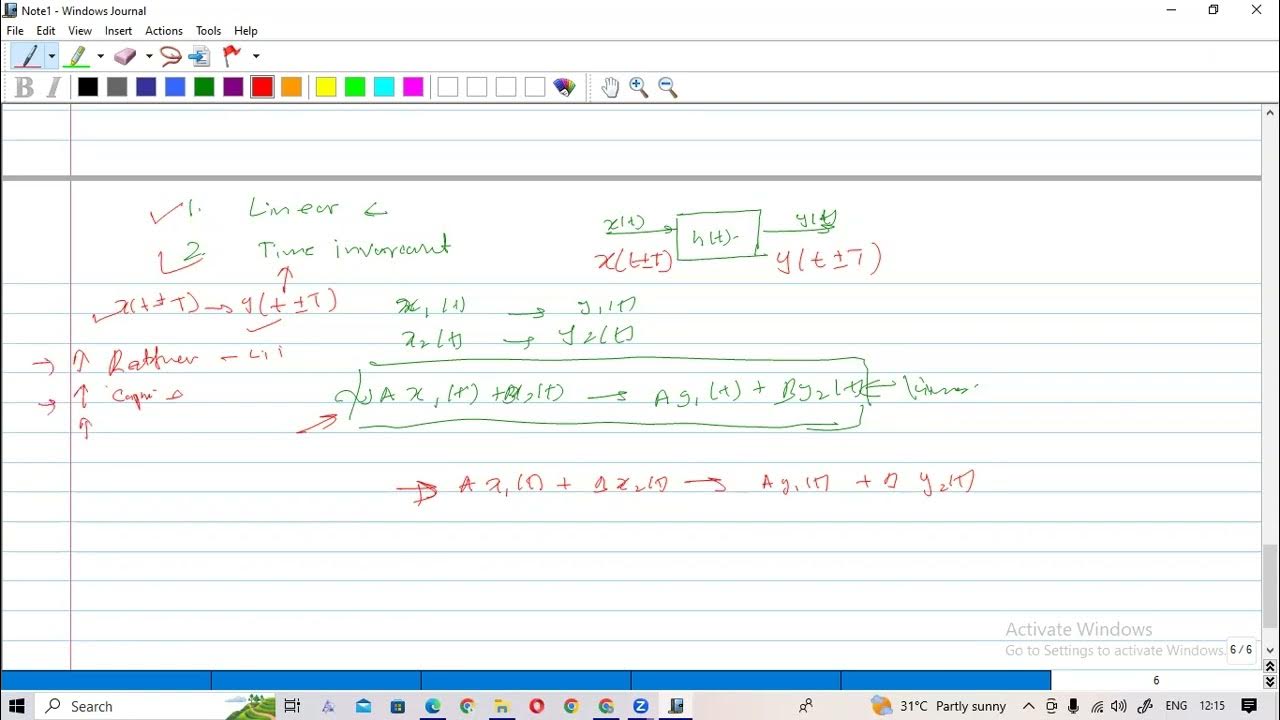 Note1 - Windows Journal
File Edit View Insert Actions Tools Help
B I
1. Linear
2. Time invariant
x(t) h(t) y(t)
x(t±T) y(t±T)
x(t±T) → y(t±T)
x₁(t) → y₁(t)
x₂(t) → y₂(t)
A x₁(t) + Bx₂(t) → A y₁(t) + By₂(t)
A x₁(t) + B x₂(t) → A y₁(t) + B y₂(t)
Activate Windows
Go to Settings to activate Windows.
6 / 6
6
Search
31°C Partly sunny
ENG
12:15